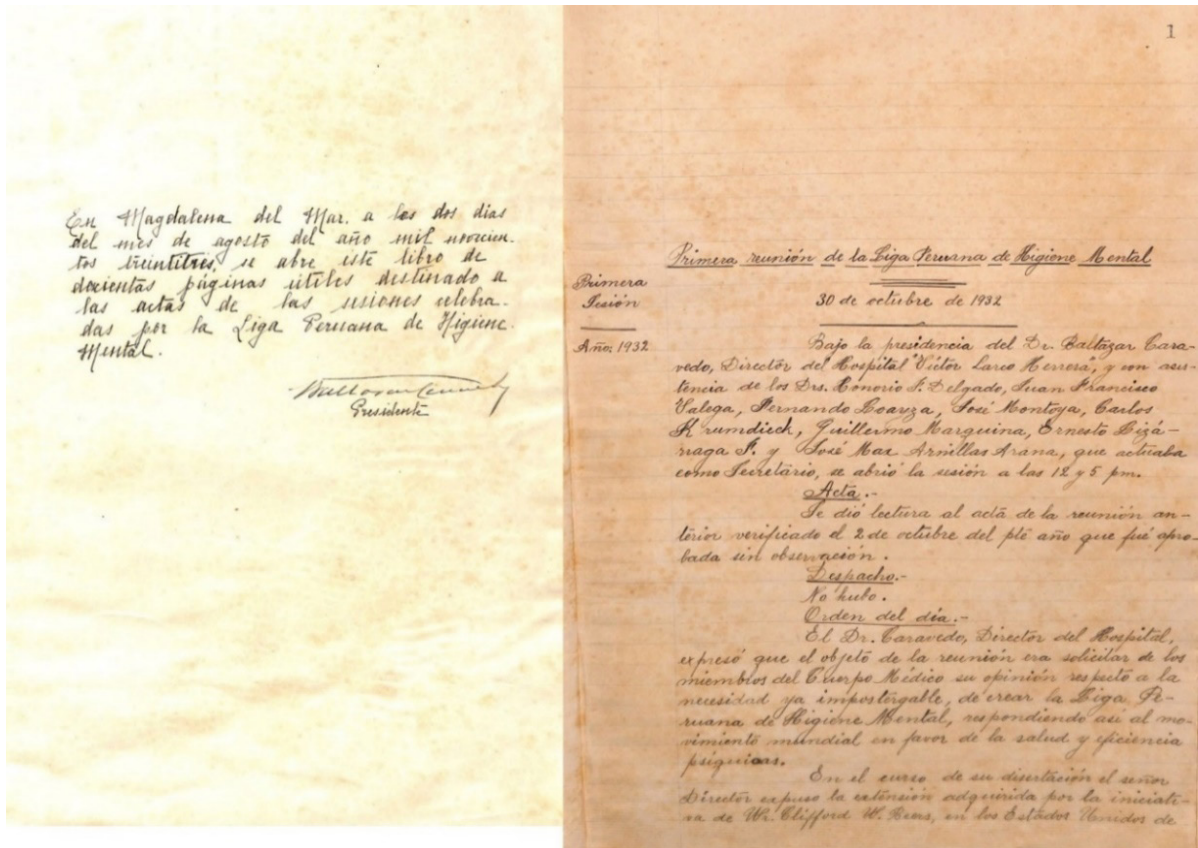 En Magdalena del Mar. a los dos dias
del mes de agosto del año mil novecien-
tos treintitres, se abre este libro de
docientas páginas útiles destinado a
las actas de las sesiones celebra-
das por la Liga Peruana de Higiene
Mental.
Presidente
1
Primera reunión de la Liga Peruana de Higiene Mental
Primera
Sesión
30 de octubre de 1932
Año: 1932
Bajo la presidencia del Dr. Baltazar Cara-
vedo, Director del Hospital "Víctor Larco Herrera", y con asis-
tencia de los Drs. Honorio F. Delgado, Juan Francisco
Valega, Fernando Loayza, José Montoya, Carlos
Krumdieck, Guillermo Marquina, Ernesto Lizá-
rraga F. y José Max Arnillas Arana, que actuaba
como Secretario, se abrió la sesión a las 12 y 5 pm.
Acta.-
Se dió lectura al acta de la reunión an-
terior verificado el 2 de octubre del pte año que fué apro-
bada sin observación.
Despacho.-
No hubo.
Orden del día.-
El Dr. Caravedo, Director del Hospital,
expresó que el objeto de la reunión era solicitar de los
miembros del Cuerpo Médico su opinión respecto a la
necesidad ya impostergable, de crear la Liga Pe-
ruana de Higiene Mental, respondiendo asi al mo-
vimiento mundial en favor de la salud y eficiencia
psíquicas.
En el curso de su disertación el señor
Director expuso la extensión adquirida por la iniciati-
va de Wr. Clifford W. Beers, en los Estados Unidos de